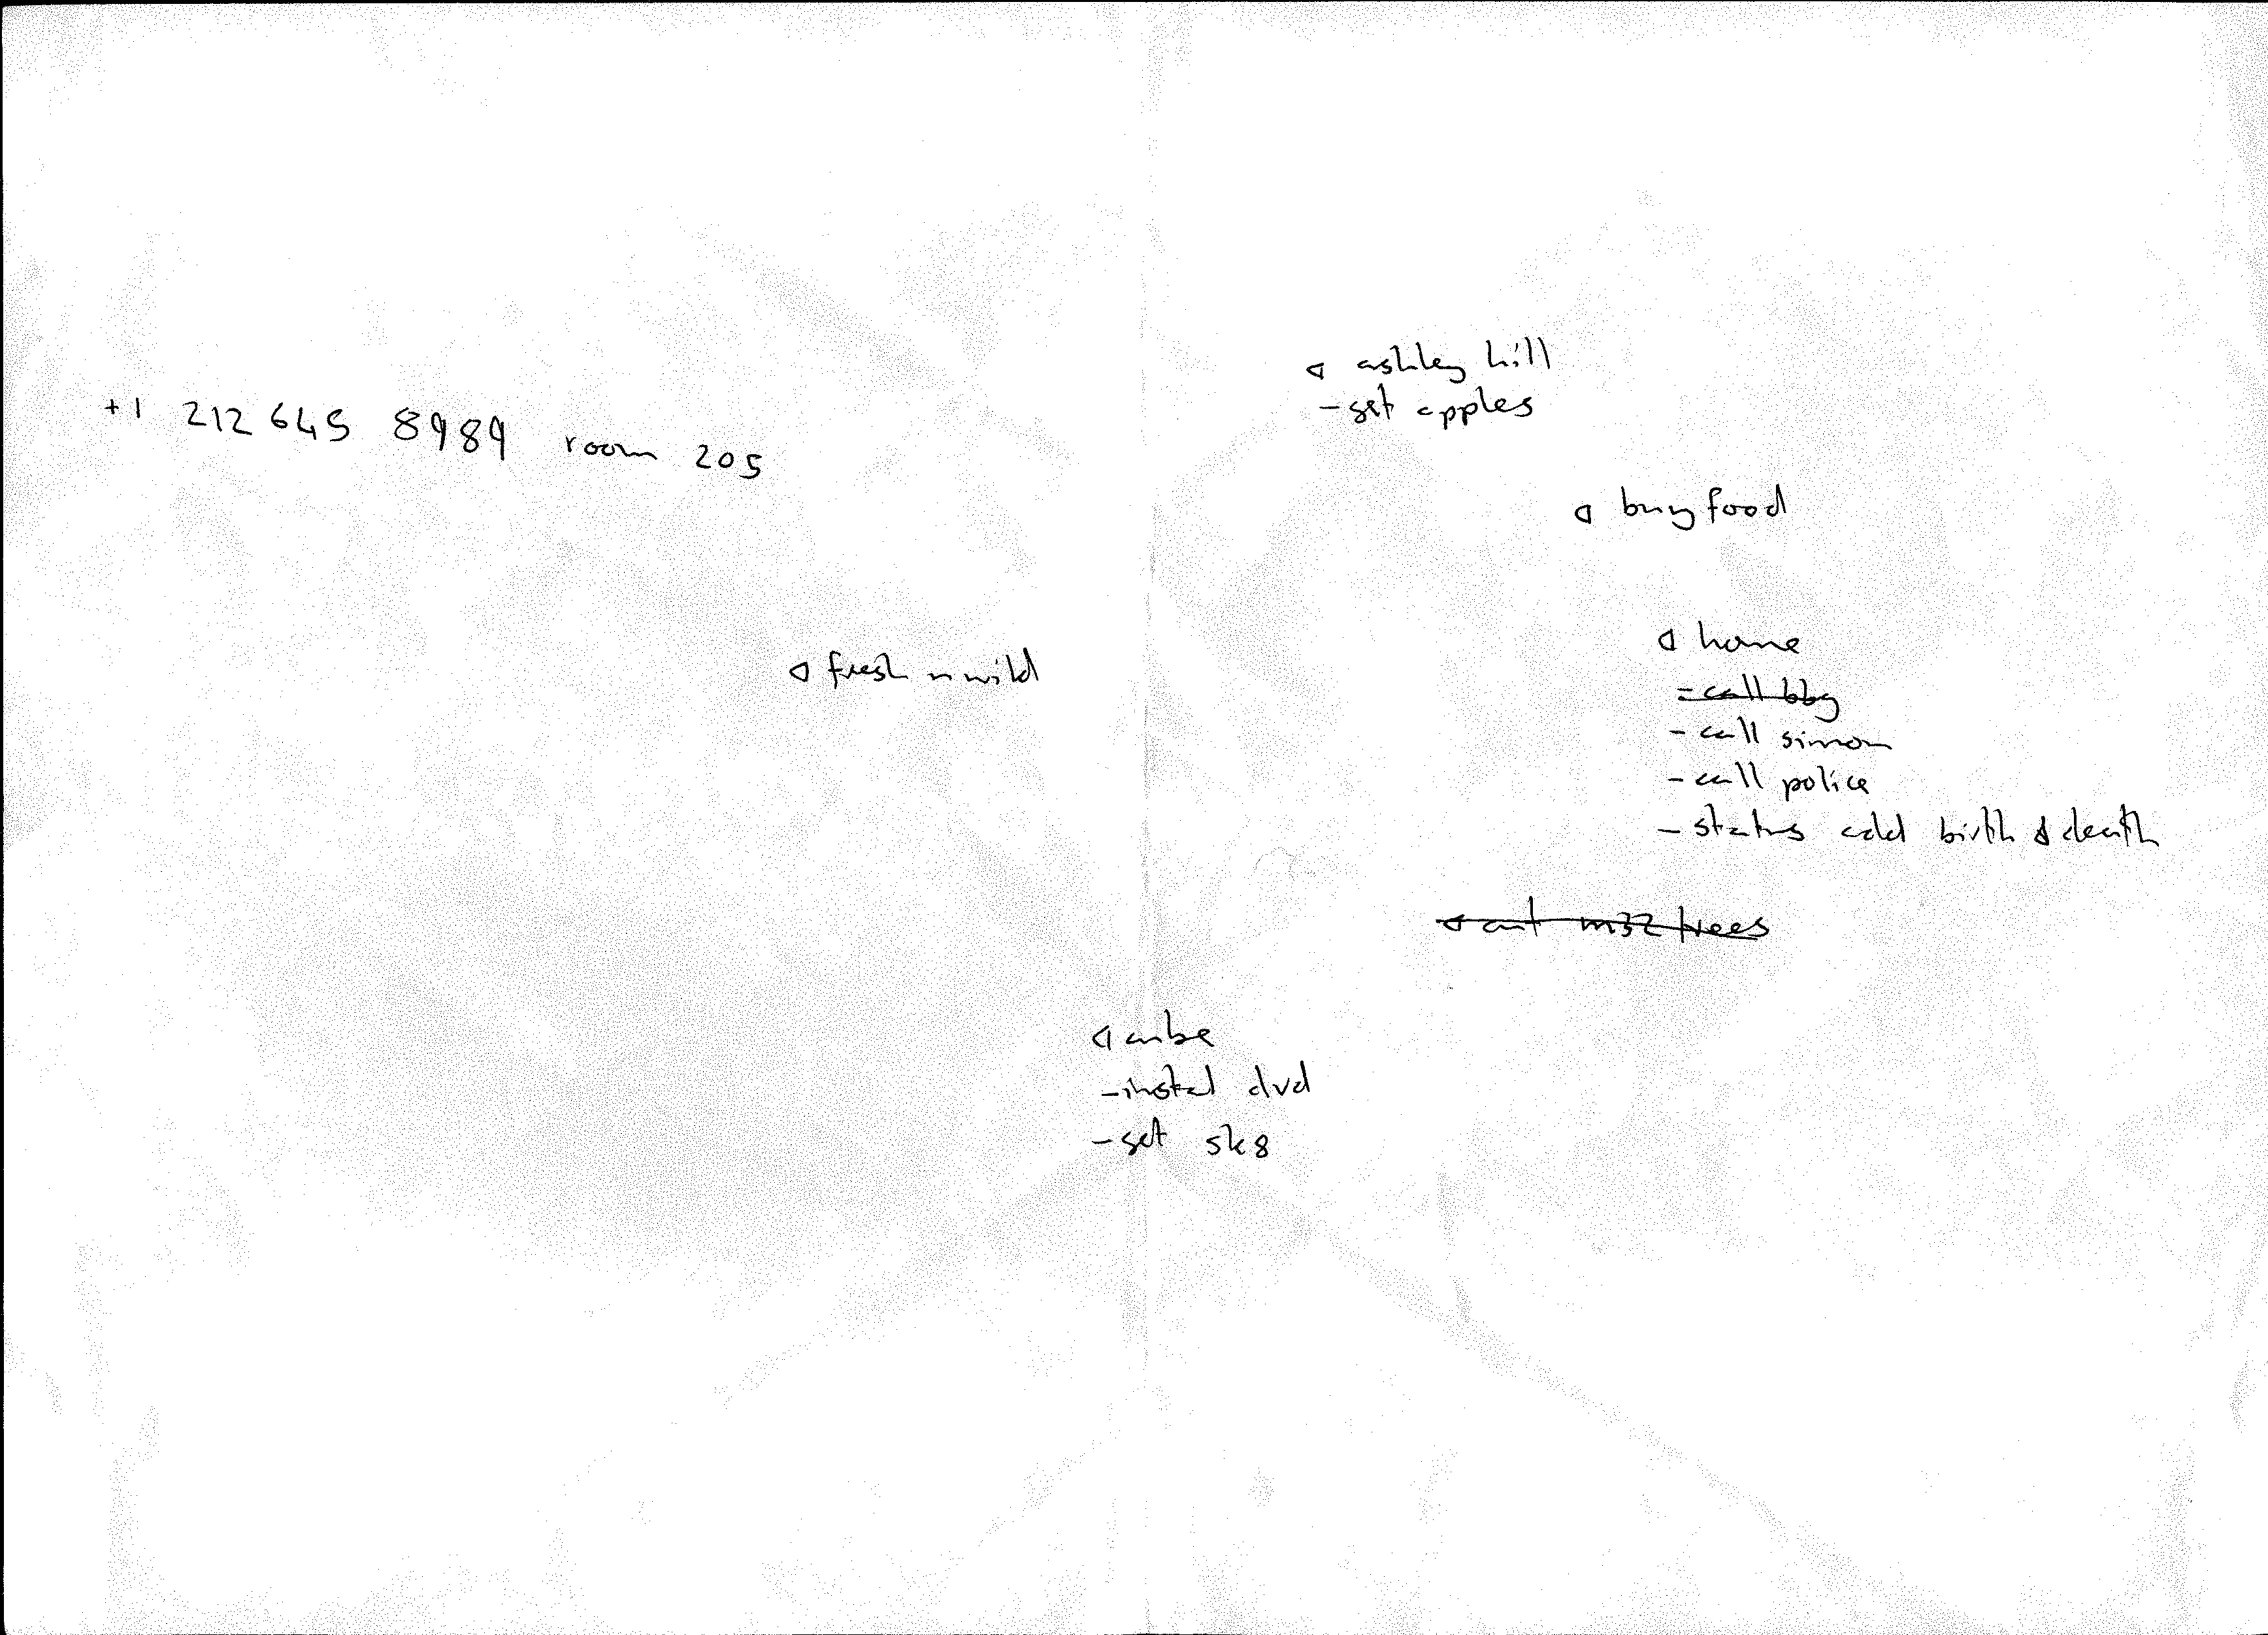 +1 212 645 8989 room 205
ashley hill
- get apples
buy food
fresh n wild
home
- call bbg
- call simon
- call police
- status add birth & death
cut m32 trees
cube
- instal dvd
- get sk8